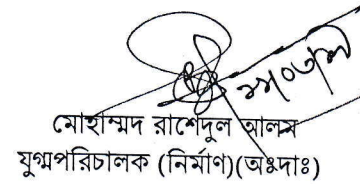 মোহাম্মদ রাশেদুল আলম
যুগ্মপরিচালক (নির্মাণ)(অঃদাঃ)